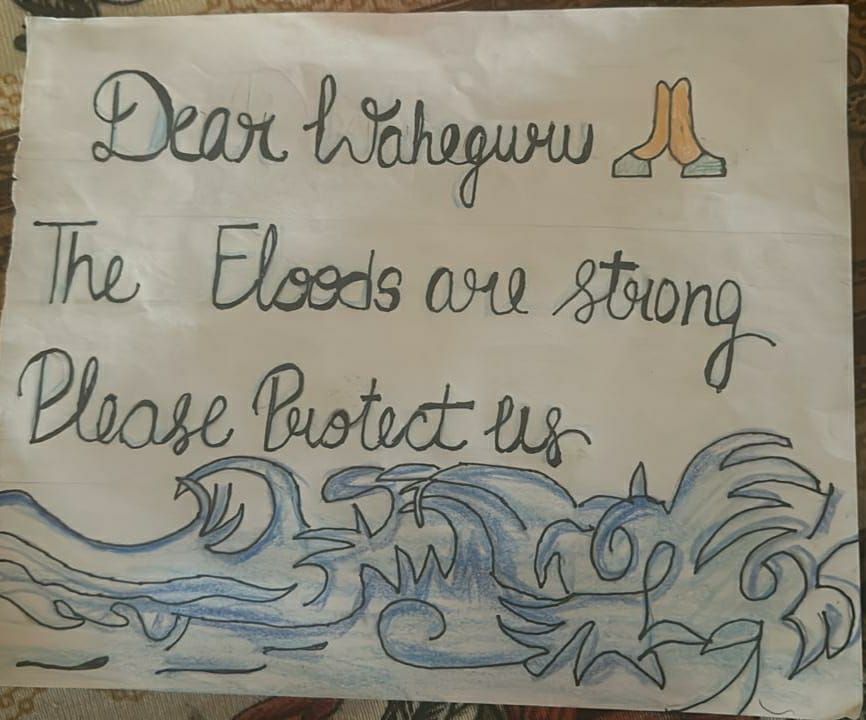 Dear Waheguru 🙏
The Floods are strong
Please Protect us